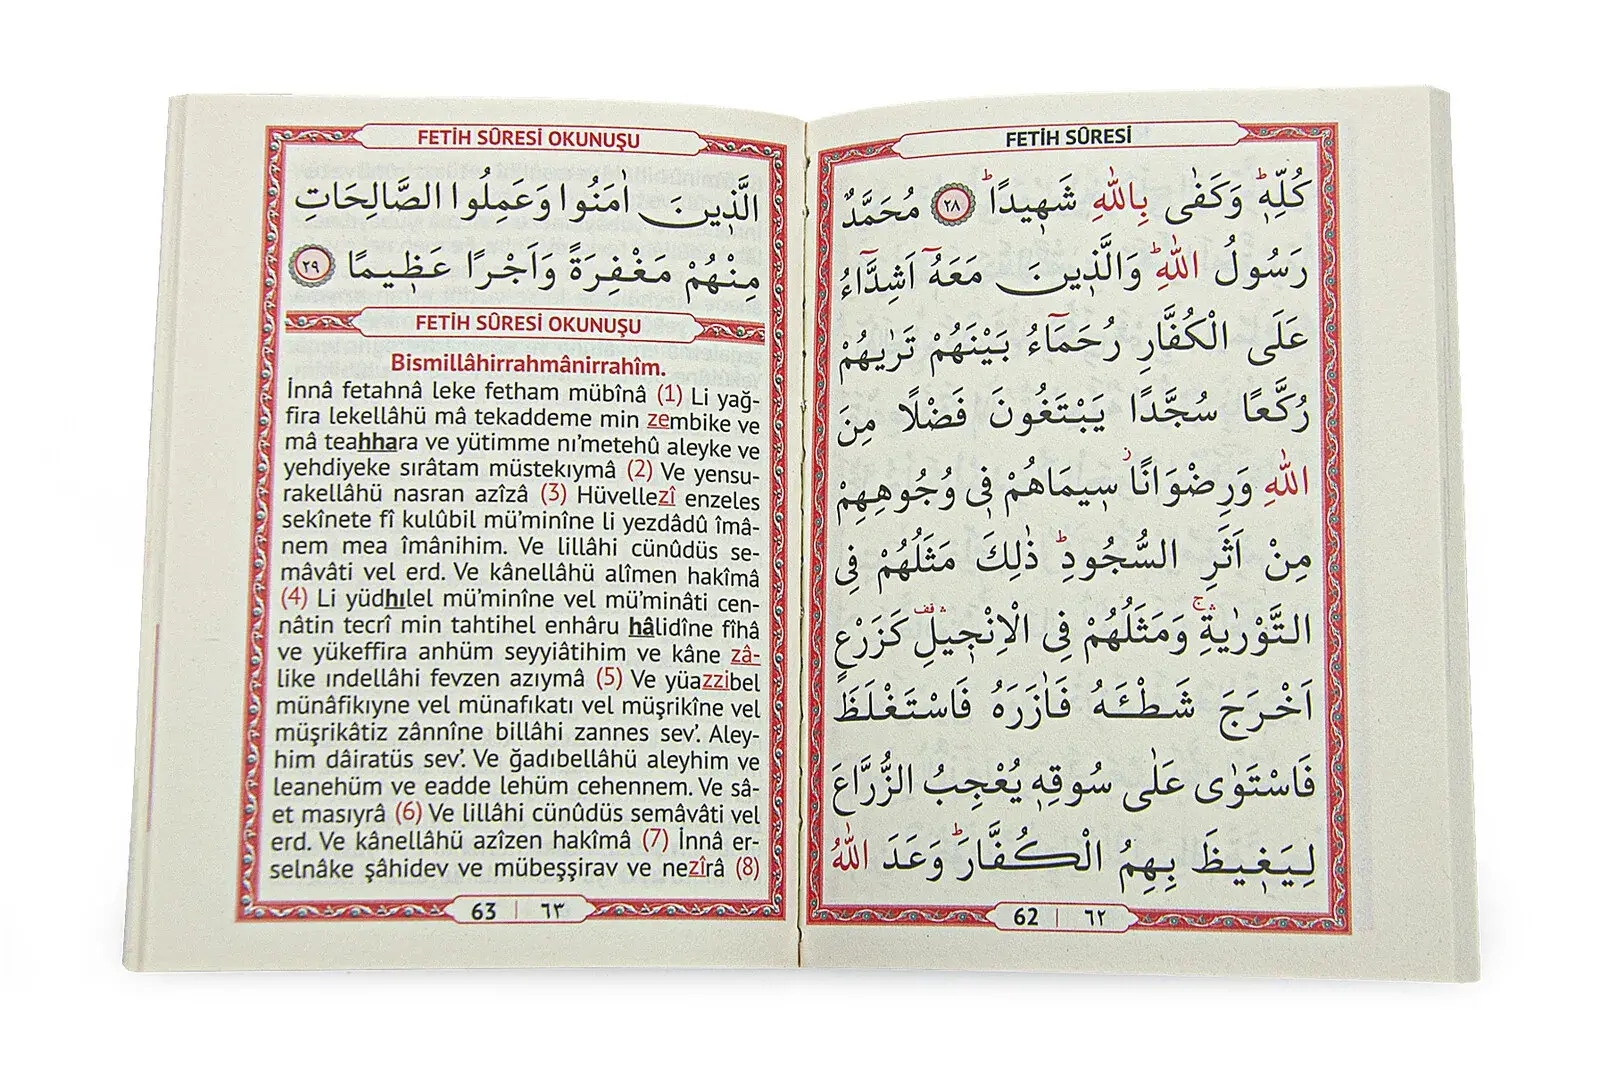 FETİH SÛRESİ
كُلِّهٖۜ وَكَفٰى بِاللّٰهِ شَهٖيدًاۜ ﴿٢٨﴾ مُحَمَّدٌ
رَسُولُ اللّٰهِۜ وَالَّذٖينَ مَعَهُٓ اَشِدَّٓاءُ
عَلَى الْكُفَّارِ رُحَمَٓاءُ بَيْنَهُمْ تَرٰيهُمْ
رُكَّعًا سُجَّدًا يَبْتَغُونَ فَضْلًا مِنَ
اللّٰهِ وَرِضْوَانًاؗ سٖيمَاهُمْ فٖى وُجُوهِهِمْ
مِنْ اَثَرِ السُّجُودِۜ ذٰلِكَ مَثَلُهُمْ فِى
التَّوْرٰيةِۚۛ وَمَثَلُهُمْ فِى الْاِنْجٖيلِۛ قف كَزَرْعٍ
اَخْرَجَ شَطْـَٔهُ فَاٰزَرَهُ فَاسْتَغْلَظَ
فَاسْتَوٰى عَلٰى سُوقِهٖ يُعْجِبُ الزُّرَّاعَ
لِيَغٖيظَ بِهِمُ الْكُفَّارَۜ وَعَدَ اللّٰهُ
62 | ٦٢
FETİH SÛRESİ OKUNUŞU
الَّذٖينَ اٰمَنُوا وَعَمِلُوا الصَّالِحَاتِ
مِنْهُمْ مَغْفِرَةً وَاَجْرًا عَظٖيمًا ﴿٢٩﴾
FETİH SÛRESİ OKUNUŞU
Bismillâhirrahmânirrahîm.
İnnâ fetahnâ leke fetham mübînâ (1) Li yağ-
fira lekellâhü mâ tekaddeme min zembike ve
mâ teahhara ve yütimme nı’metehû aleyke ve
yehdiyeke sırâtam müstekıymâ (2) Ve yensu-
rakellâhü nasran azîzâ (3) Hüvellezî enzeles
sekînete fî kulûbil mü’minîne li yezdâdû îmâ-
nem mea îmânihim. Ve lillâhi cünûdüs se-
mâvâti vel erd. Ve kânellâhü alîmen hakîmâ
(4) Li yüdhılel mü’minîne vel mü’minâti cen-
nâtin tecrî min tahtihel enhâru hâlidîne fîhâ
ve yükeffira anhüm seyyiâtihim ve kâne zâ-
like ındellâhi fevzen azıymâ (5) Ve yüazzibel
münâfikıyne vel münafıkatı vel müşrikîne vel
müşrikâtiz zânnîne billâhi zannes sev’. Aley-
him dâiratüs sev’. Ve ğadıbellâhü aleyhim ve
leanehüm ve eadde lehüm cehennem. Ve sâ-
et masıyrâ (6) Ve lillâhi cünûdüs semâvâti vel
erd. Ve kânellâhü azîzen hakîmâ (7) İnnâ er-
selnâke şâhidev ve mübeşşirav ve nezîrâ (8)
63 | ٦٣